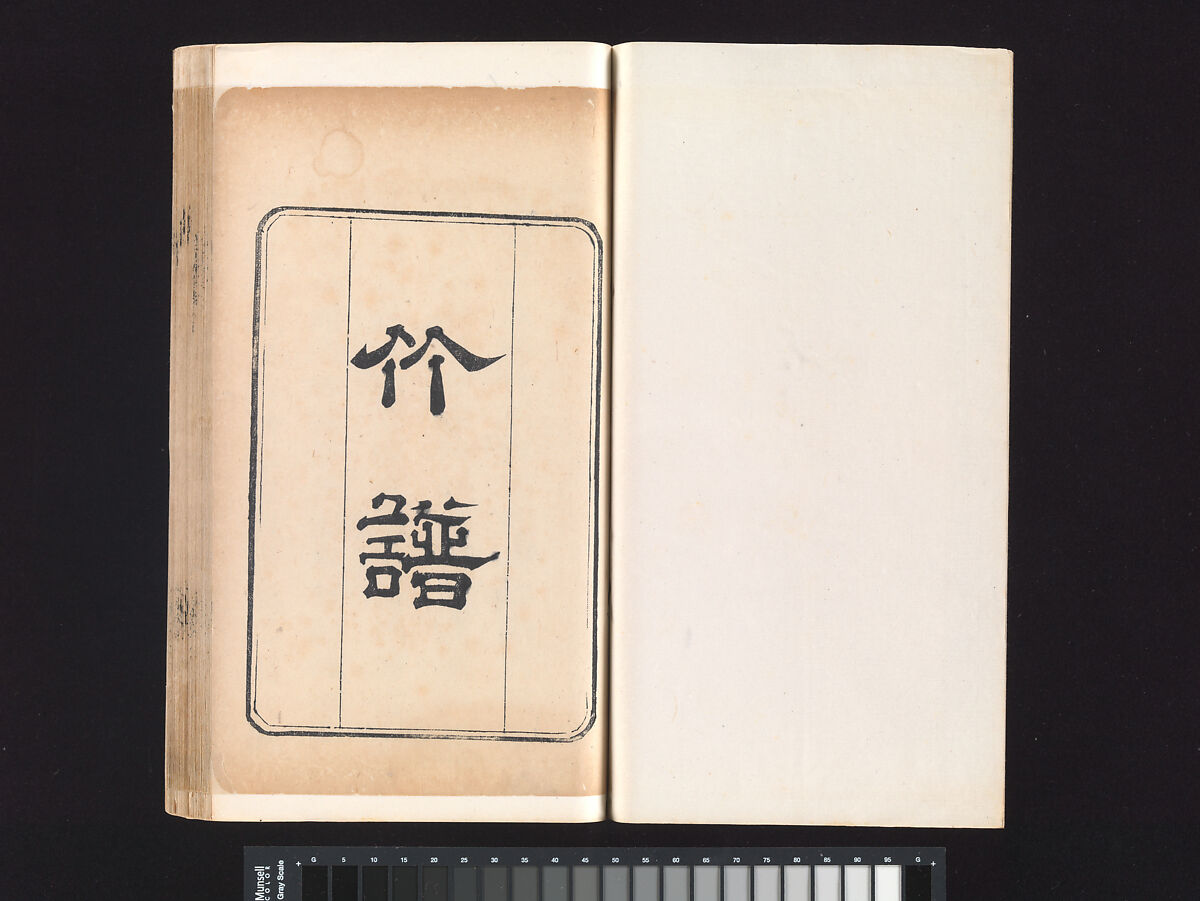 竹譜
G 5 10 15 20 25 30 35 40 45 50 55 60 65 70 75 80 85 90 95 G
Munsell
COLOR
Gray Scale